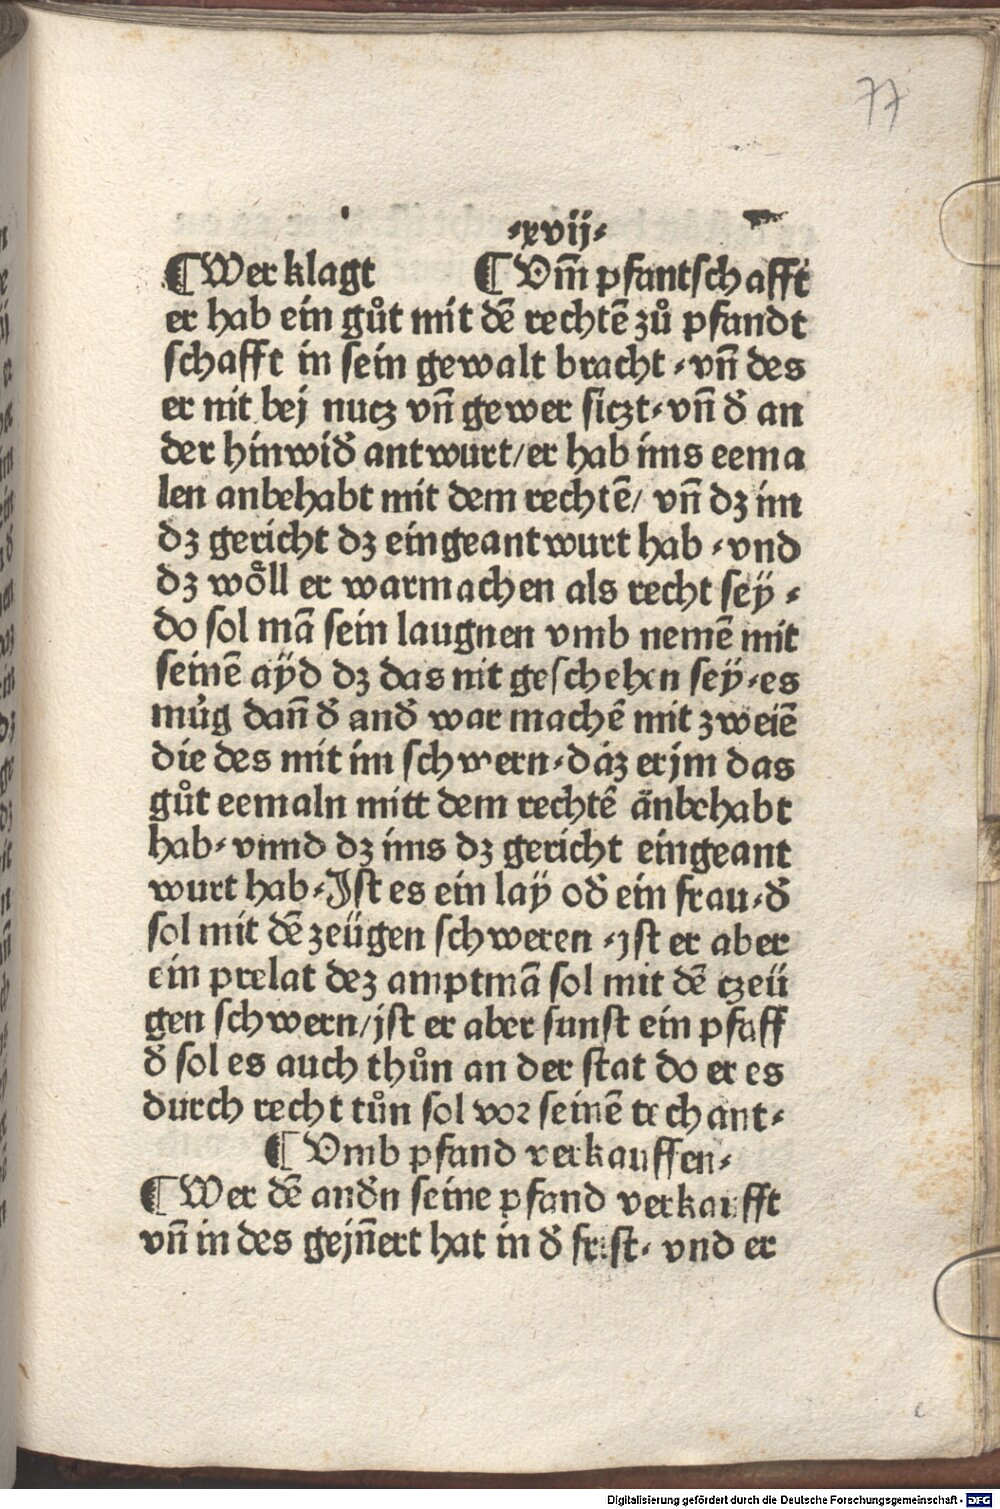 77
-xvij-
¶Wer klagt ¶Vm̄ pfantschafft
er hab ein gůt mit dē rechtē zů pfandt
schafft in sein gewalt bracht - vn̄ des
er nit bej nutz vn̄ gewer siczt - vn̄ d̕ an
der hinwid̕ antwurt/ er hab ims eema
len anbehabt mit dem rechtē/ vn̄ dz im
dz gericht dz eingeantwurt hab - vnd
dz wöll er warmachen als recht seÿ -
do sol mā sein laugnen vmb nemē mit
seinē aÿd dz das nit geschehen seÿ - es
můg dan̄ d̕ and̕ war machē mit zweiē
die des mit im schwern - daz er jm das
gůt eemaln mitt dem rechtē anbehabt
hab - vnnd dz ims dz gericht eingeant
wurt hab - Jst es ein laÿ od̕ ein frau - d̕
sol mit dē zeügen schweren - jst er aber
ein prelat dez amptmā sol mit dē tzeü
gen schwern/ jst er aber sunst ein pfaff
d̕ sol es auch thůn an der stat do er es
durch recht tůn sol vor seinē techant -
¶Vmb pfand verkauffen -
¶Wer dē and̕n seine pfand verkaufft
vn̄ in des gejn̄ert hat in d̕ frist - vnd er
Digitalisierung gefördert durch die Deutsche Forschungsgemeinschaft - DFG